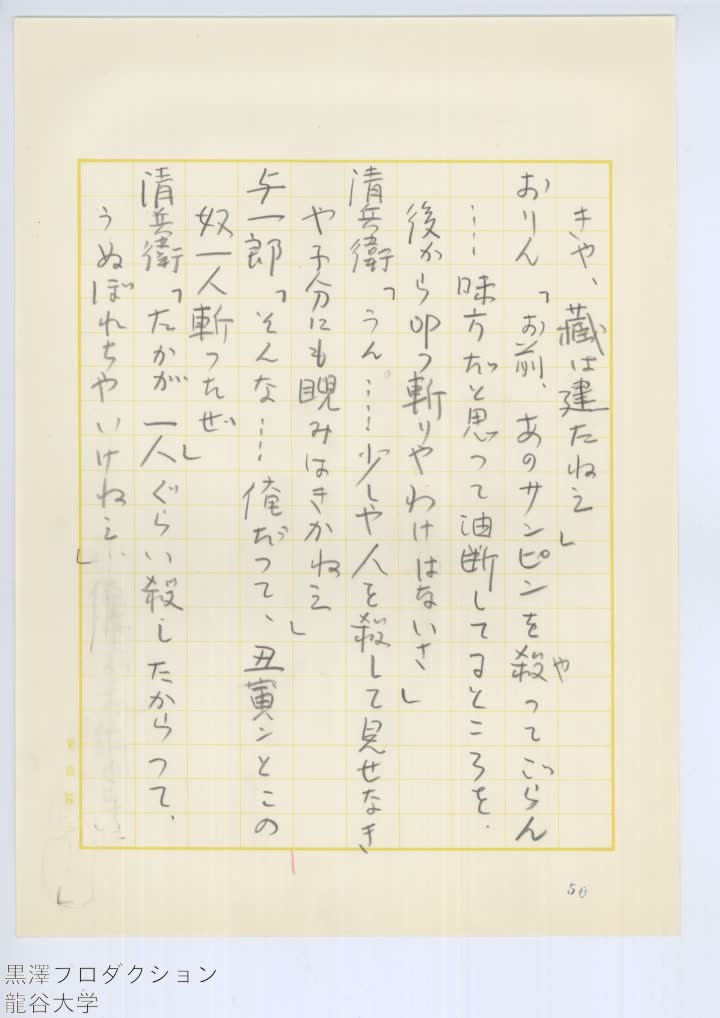 きや、藏は建たねえ」
おりん「お前、あのサンピンを殺ってごらん
や
…味方だと思って油断してるところを、
後から叩っ斬りやわけはないさ」
清兵衛「うん……少しや人を殺して見せなき
や子分にも睨みはきかねえ」
与一郎「そんな……俺だって、丑寅ンとこの
奴一人斬ったぜ」
清兵衛「たかが一人ぐらい殺したからって、
うぬぼれちやいけねえ」
50
黒澤プロダクション
龍谷大学